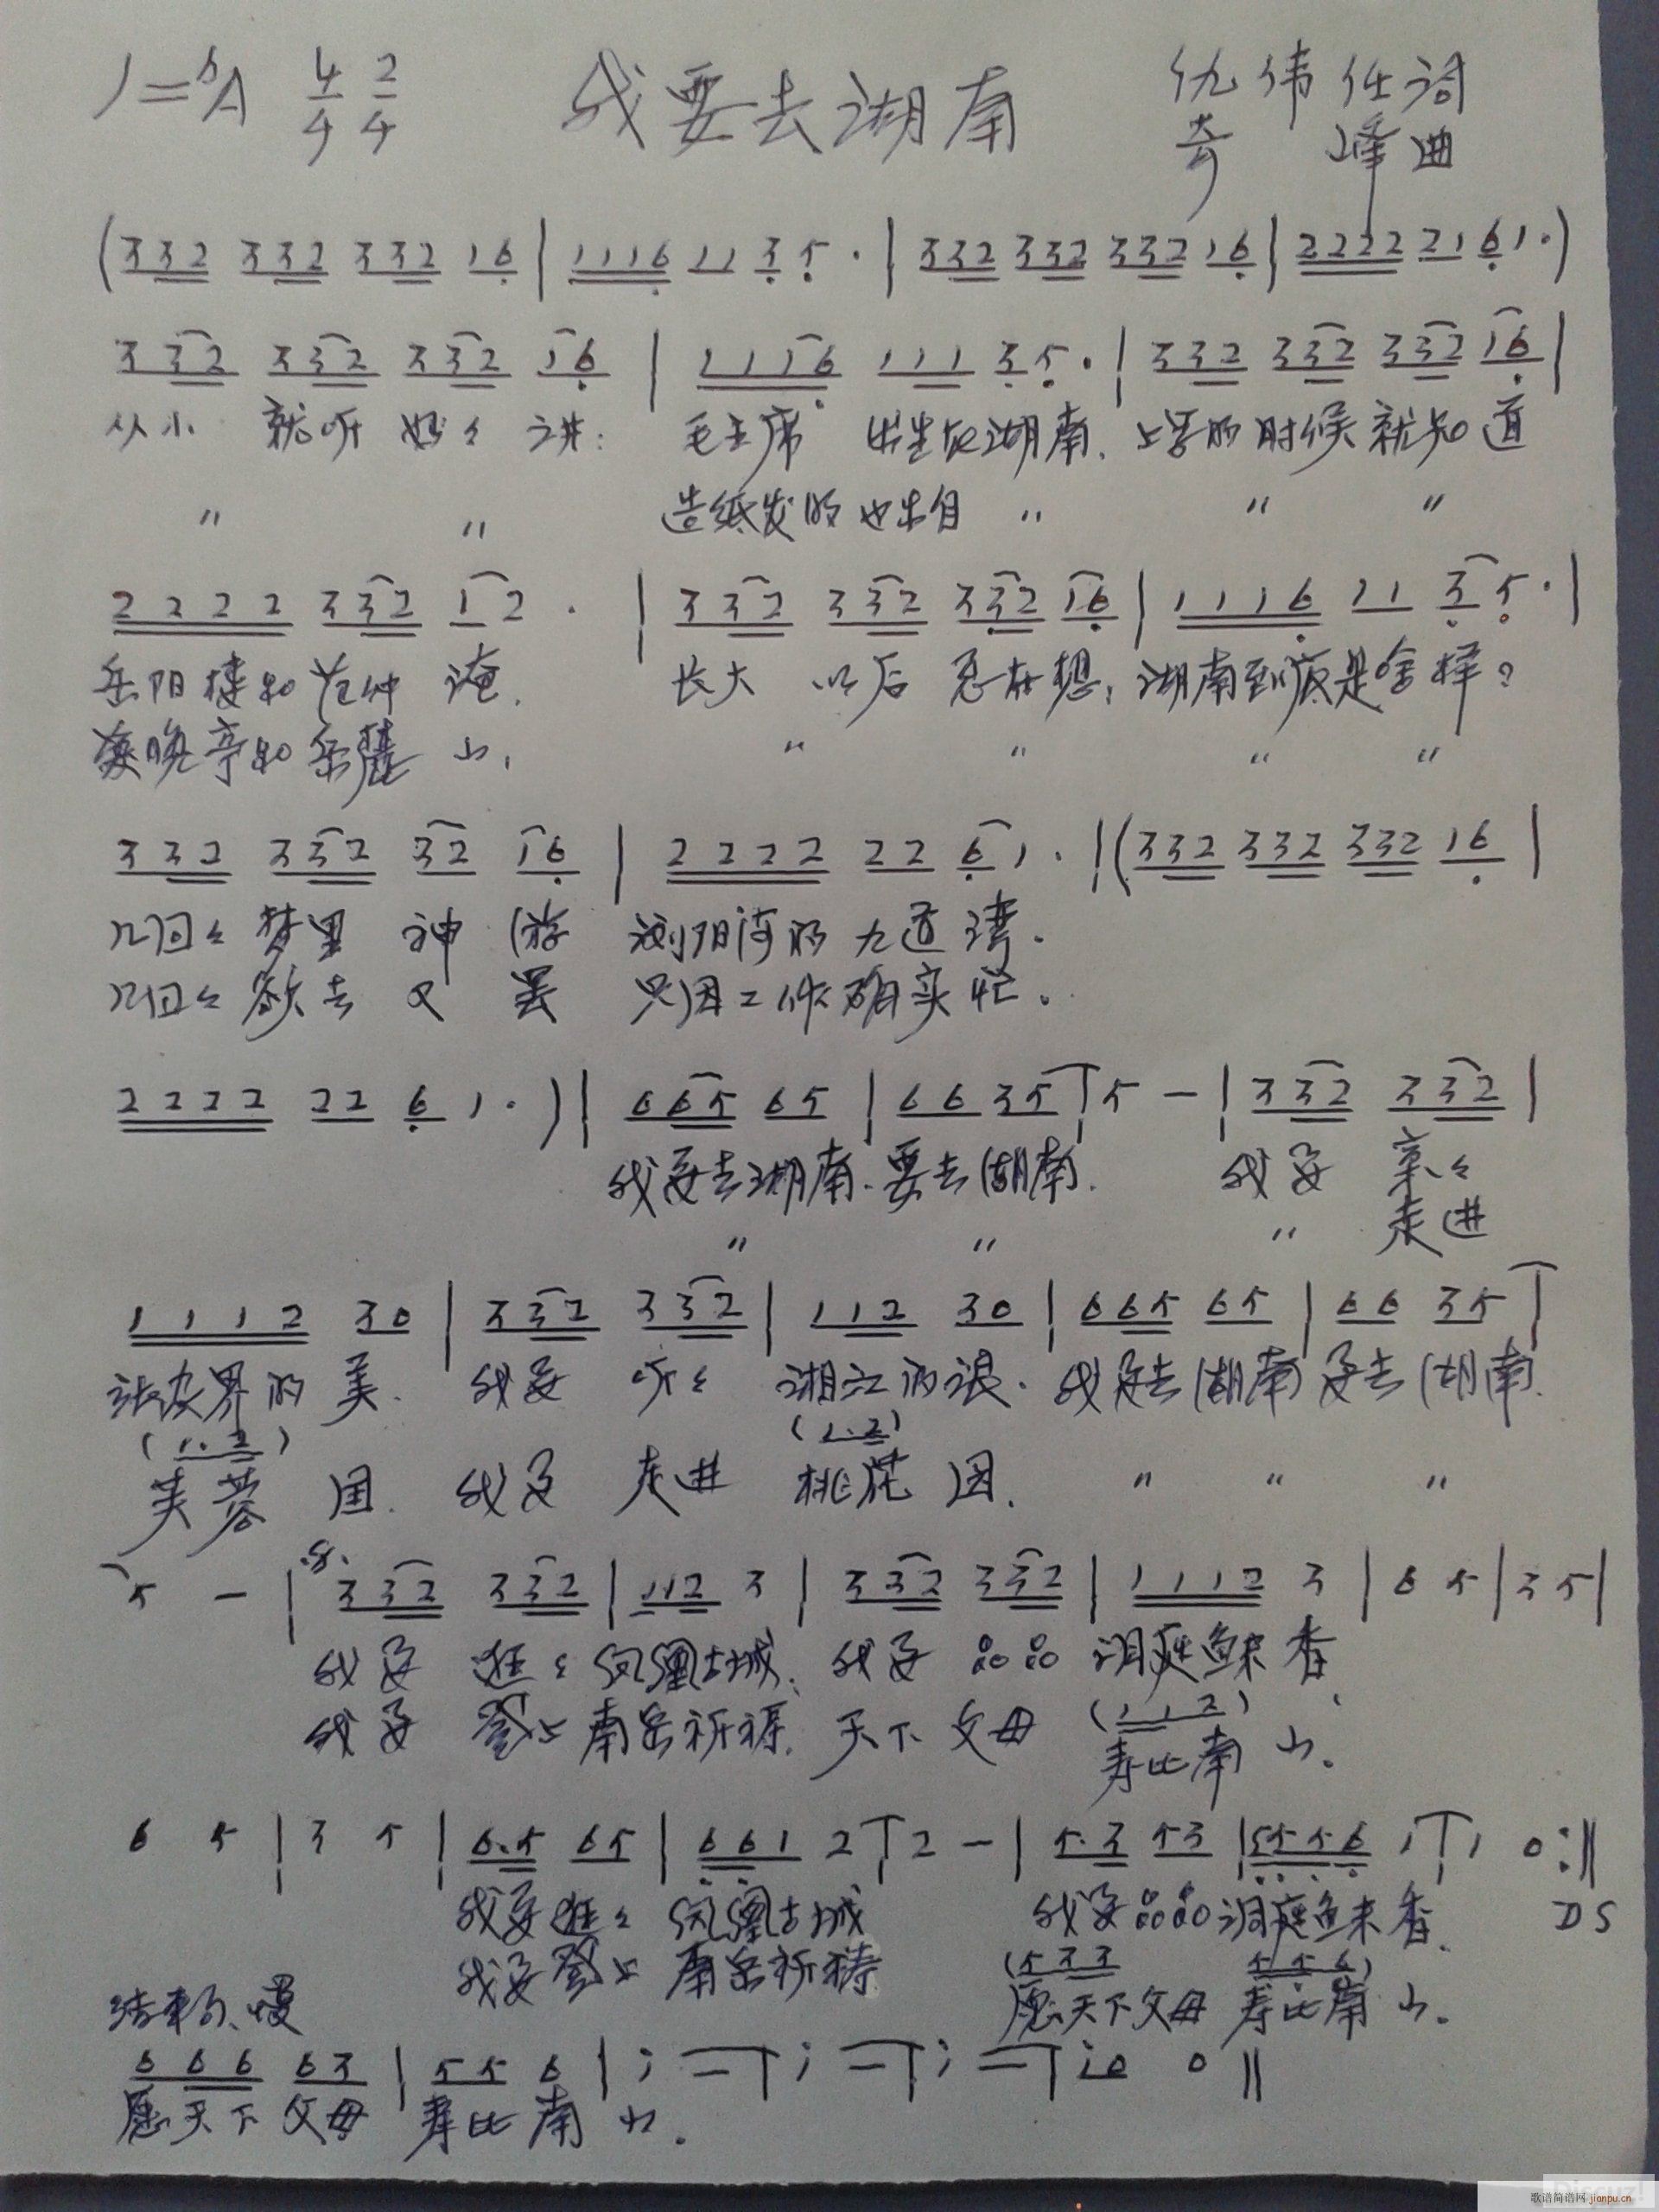 1=bA 4/4 2/4 我要去湖南 仇伟任词
奇峰曲
(332 332 332 16|1116 11 35·|332 332 332 16|2222 21 61·)
332 332 332 16|1116 111 35·|332 332 332 16|
从小 就听妈々讲: 毛主席 出生在湖南. 上学的时候就知道
〃 〃 造纸发明也出自 〃 〃 〃
2222 332 12·|332 332 332 16|1116 11 35·|
岳阳楼和范仲淹. 长大 以后 总在想: 湖南到底是啥样?
爱晚亭和岳麓山, 〃 〃 〃 〃
332 332 32 16|2222 22 61·|(332 332 332 16|
几回々梦里 神游 浏阳河的九道湾.
几回々欲去 又罢 只因工作确实忙.
2222 22 61·)|665 65|66 35|5 -|332 332|
我要去湖南.要去湖南. 我要 亲々
〃 〃 〃 走进
1112 30|332 332|112 30|665 65|66 35|
张家界的美. 我要 听々 湘江的浪. 我要去湖南 要去湖南.
(1.2) (1.2)
芙蓉国. 我要 走进 桃花园. 〃 〃 〃
5 -|332 332|112 3|332 332|1112 3|6 5|3 5|
我要 逛々凤凰古城. 我要 品品 洞庭鱼米香.
我要 登上南岳祈祷. 天下父母 (112)
寿比南山.
6 5|3 5|6.5 65|661 2|2 -|5.3 53|5556 1|1 0:‖
我要逛々 凤凰古城 我要品品洞庭鱼米香. DS
我要登上 南岳祈祷 (533 556)
结束句、慢 愿天下父母 寿比南山.
666 63|55 6|i -|i -|i -|i0 0‖
愿天下父母 寿比南山.
歌谱简谱网 jianpu.cn